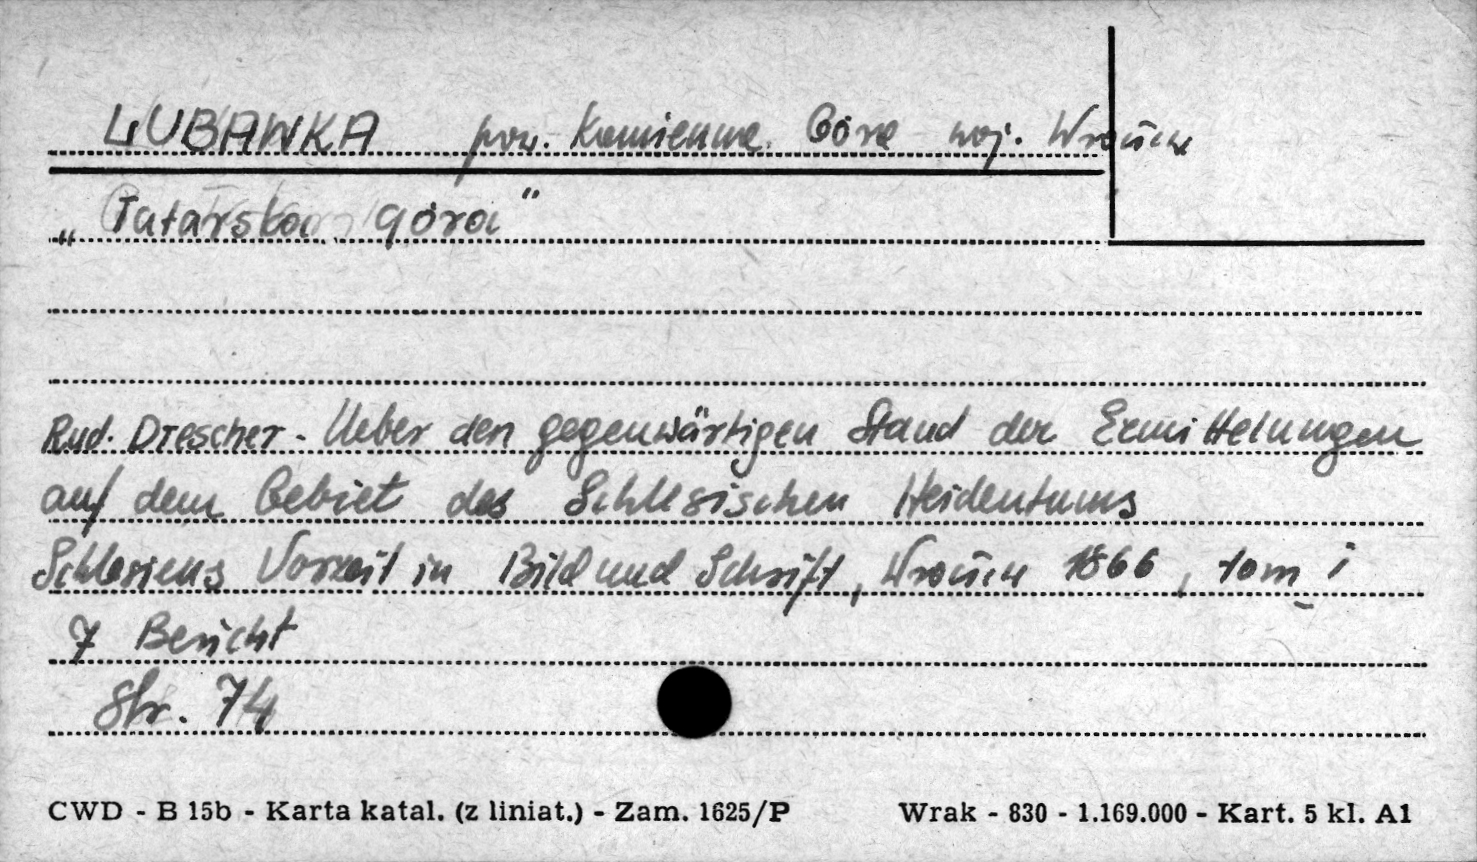 LUBAWKA pow. Kamienna Góra woj. Wrocław
„Tatarska góra"
Rud. Drescher - Ueber den gegenwärtigen Stand der Ermittelungen
auf dem Gebiet des Schlesischen Heidentums
Schlesiens Vorzeit in Bild und Schrift, Wrocław 1866, tom i
7 Bericht
Str. 74
CWD - B 15b - Karta katal. (z liniat.) - Zam. 1625/P Wrak - 830 - 1.169.000 - Kart. 5 kl. A1